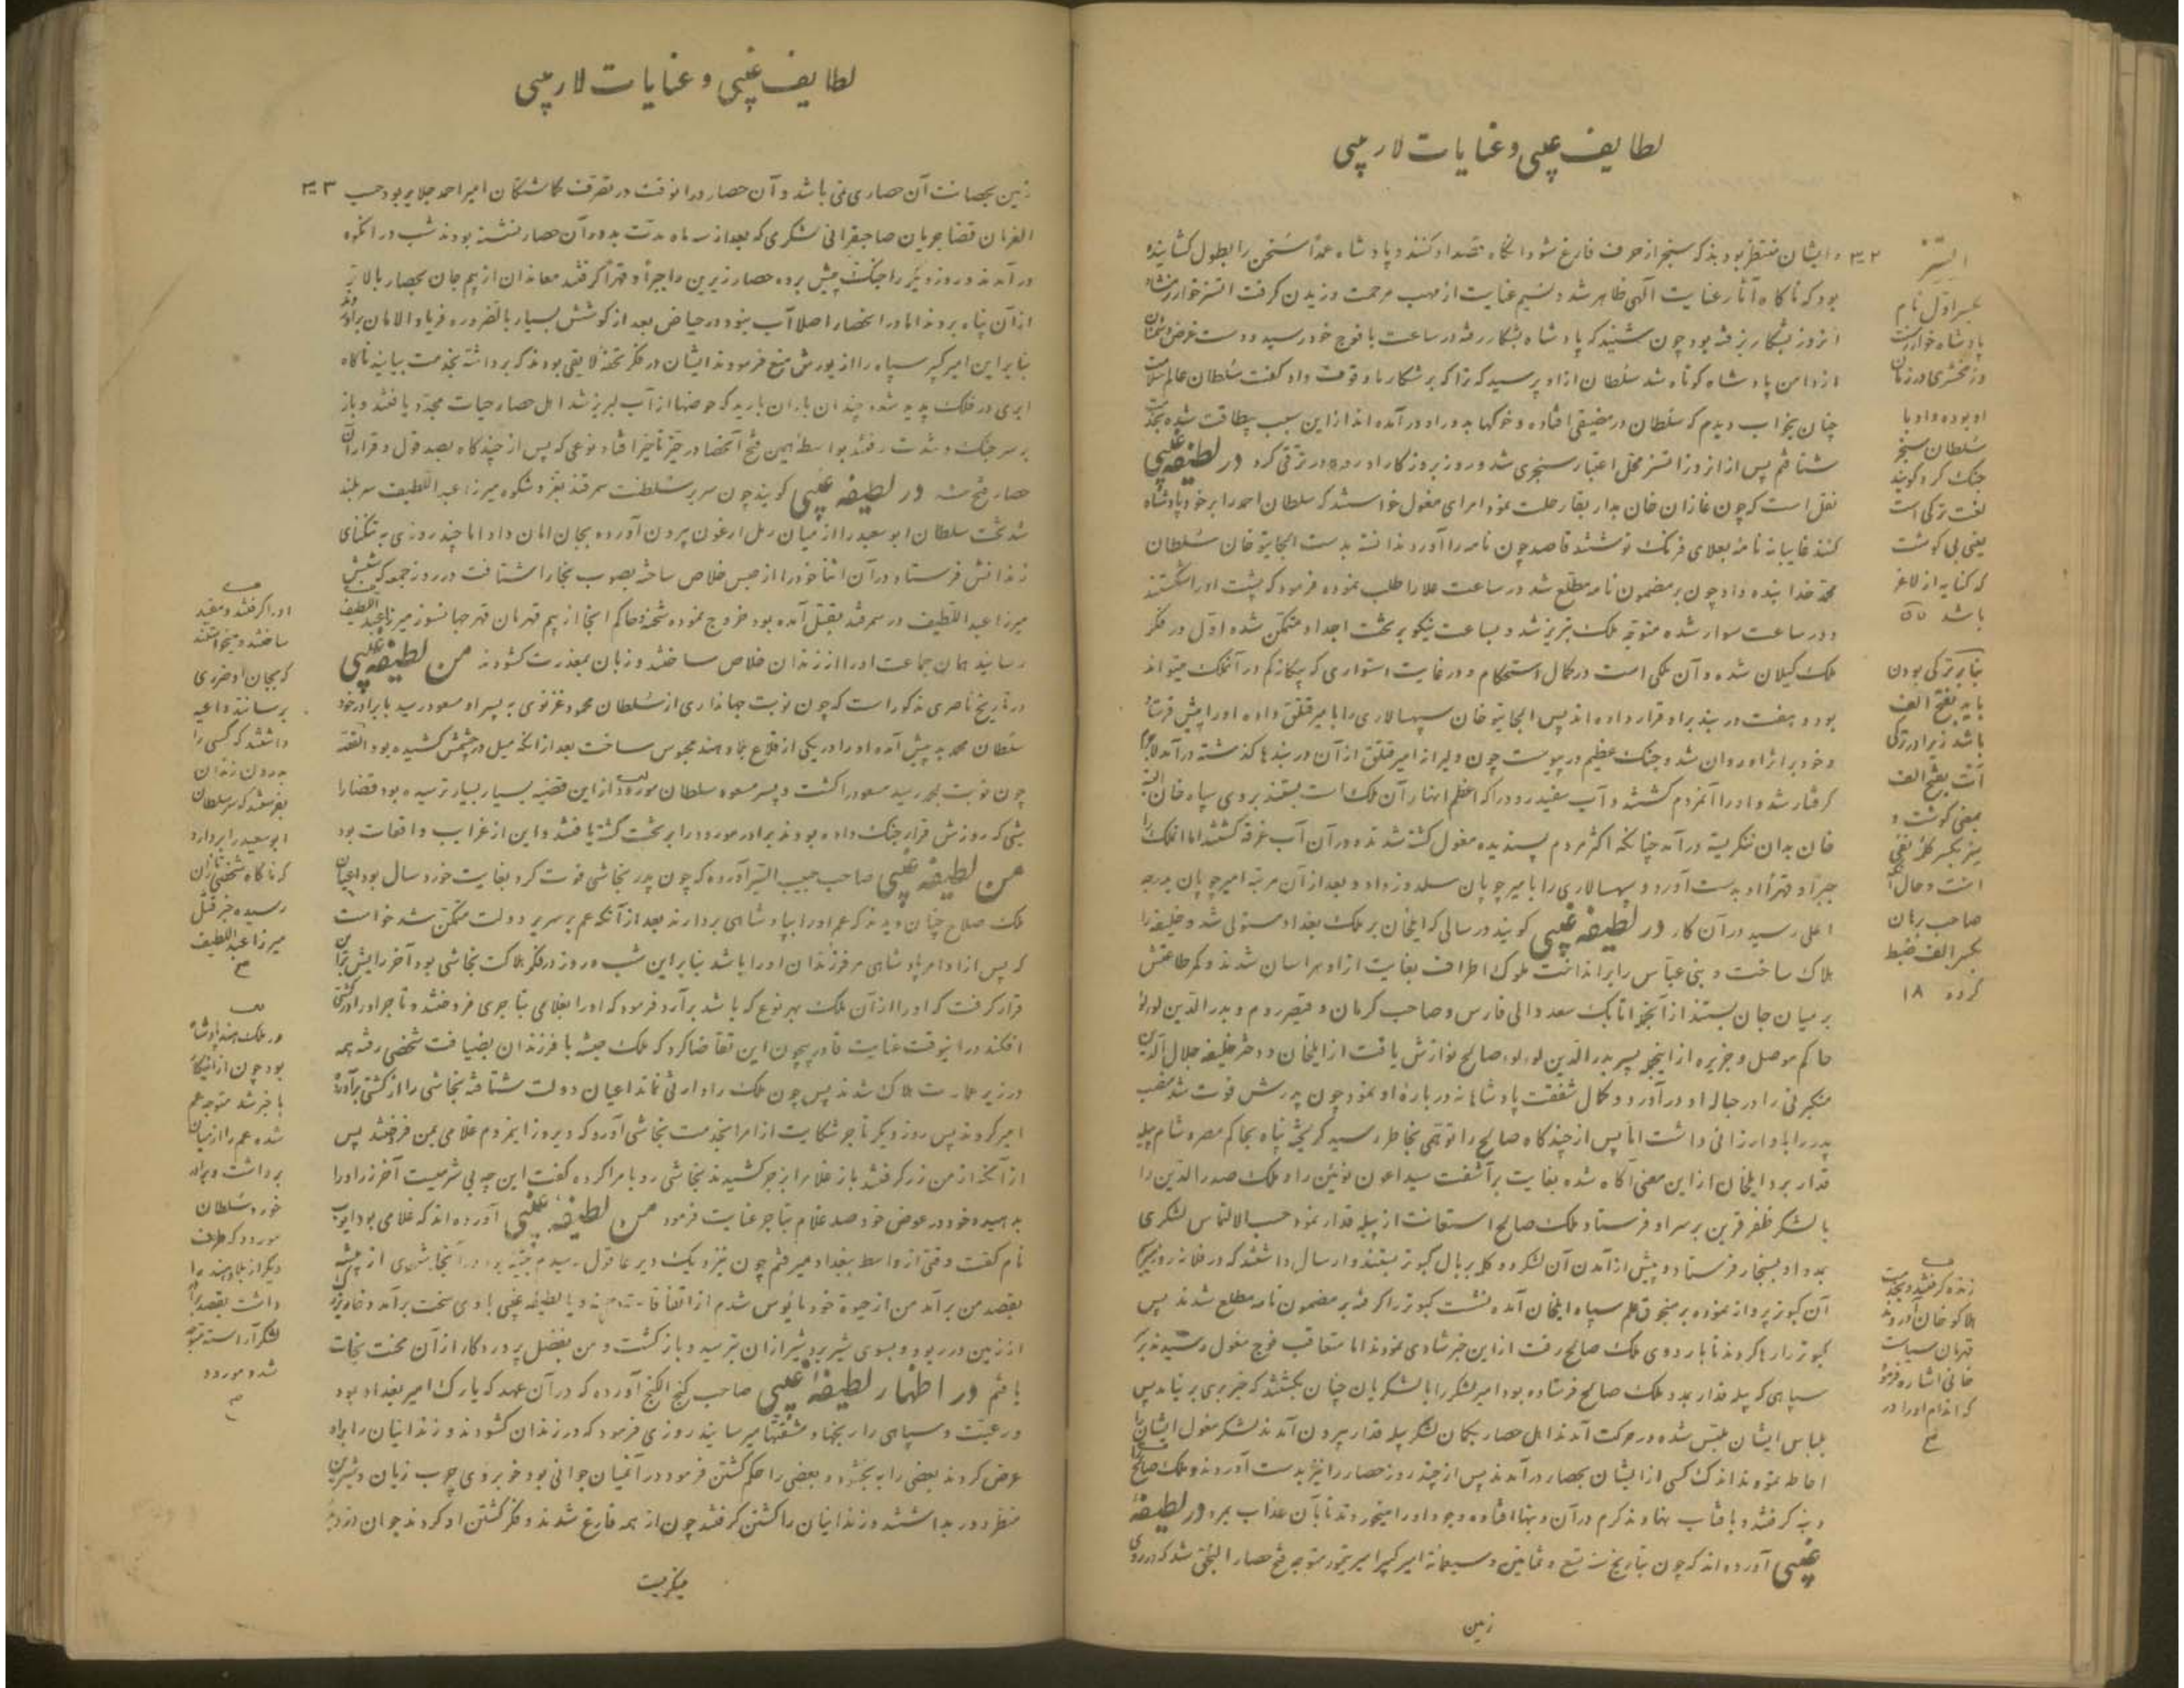 لطایف غیبی و عنایات لاریبی
۳۰۲ و ایشان منتظر بودند که سنجر از حرف فارغ شود آنگاه قصد او کنند و پادشاه عمداً سخن را بطول کشانیده
بود که ناگاه آثار عنایت الهی ظاهر شد و نسیم عنایت از مهب مرحمت وزیدن گرفت اتسز خوارزمشاه
آنروز بشکار رفته بود چون شنید که پادشاه بشکار رفته در ساعت با فوج خود رسید و دست
از دامن پادشاه کوتاه شد سلطان از او پرسید که ترا که بر شکار ما وقوف داد گفت سلطان عالم سلامت
چنان بخواب دیدم که سلطان در مضیقی افتاده و خوکها بدور او در آمده اند از این سبب بیطاقت شده
شتافتم پس از آنروز اتسز محل اعتبار سنجری شد و روز بروز کار او رو در ترقی کرد در لطیفه غیبی
نقل است که چون غازان خان بدار بقا رحلت نمود امرای مغول خواستند که سلطان احمد را بر خود پادشاه
کنند غایبانه نامه بعلای فرنک نوشتند قاصد چون نامه را آورد ندانسته بدست الجایتو خان سلطان
محمد خدا بنده داد چون بر مضمون نامه مطلع شد در ساعت علا را طلب نموده فرمود که پشت او را شکستند
و در ساعت سوار شده متوجه ملک تبریز شد و بساعت نیکو بر تخت اجداد متمکن شده اول در فکر
ملک گیلان شده و آن ملکی است در کمال استحکام و در غایت استواری که بیگانه کم در آنملک میتواند
بود و هفت در بند بر او قرار داده اند پس الجایتو خان سپهسالاری را با میر قتلق داده او را پیش فرستاد
و خود بر اثر او روان شد و جنک عظیم در پیوست چون دلیر از امیر قتلق از آن در بندها گذشته در آمد
گرفتار شد و او را آنمردم کشتند و آب سفید رود را که اعظم انهار آن ملک است بستند بروی سپاه خان
خان بدان ننگریسته در آمد چنانکه اکثر مردم پسندیده مغول کشته شدند و در آن آب غرقه گشتند اما آنملک را
جبراً و قهراً او بدست آورد و سپهسالاری را با میر چوپان سلدوز داد و بعد از آن مرتبه امیر چوپان بدرجه
اعلی رسید در آن کار در لطیفه غیبی گویند در سالی که ایلخان بر ملک بغداد مستولی شد و خلیفه را
هلاک ساخت و بنی عباس را بر انداخت ملوک اطراف بغایت از او هراسان شدند و کمر طاعتش
بر میان جان بستند از آنجمله اتابک سعد والی فارس و صاحب کرمان و قیصر روم و بدر الدین لولو
حاکم موصل و جزیره از اینجهه پسر بدر الدین لولو صالح نوازش یافت از ایلخان و دختر خلیفه جلال الدین
منکبرنی را در حباله او در آورد و کمال شفقت پادشاهانه در باره او نمود چون پدرش فوت شد منصب
پدر را باو ارزانی داشت اما پس از چند گاه صالح را توهمی بخاطر رسید گریخته پناه بحاکم مصر و شام پیله
قدار برد ایلخان از این معنی آگاه شده بغایت بر آشفت سیداغون نوئین را و ملک صدر الدین را
با لشکر ظفر قرین بر سر او فرستاد ملک صالح استعانت از پیله قدار نمود حسب الالتماس لشکری
بمدد او بسنجار فرستاد و پیش از آمدن آن لشکر دو کله بر بال کبوتر بستند و ارسال داشتند که در فلان روز
آن کبوتر پرواز نموده بر منجوق علم سپاه ایلخان آمده نشست کبوتر را گرفته بر مضمون نامه مطلع شدند پس
کبوتر را رها کردند تا بار دوی ملک صالح رفت از این خبر شادی نمودند اما متعاقب فوج مغول رسیدند بر
سپاهی که پیله قدار بمدد ملک صالح فرستاده بود امیر لشکر را با لشکریان چنان بکشتند که خبر بری بر نیامد پس
بلباس ایشان ملبس شده در حرکت آمدند اهل حصار بگمان لشکر پیله قدار بیرون آمدند لشکر مغول ایشان را
احاطه نموده اندک کسی از ایشان بحصار در آمدند پس از چند روز حصار را نیز بدست آوردند و ملک صالح را
و به گرفتند و بافتاب نهادند کرم در آن دنبها افتاده وجود او را میخوردند تا بآن عذاب بمرد در لطیفه
غیبی آورده اند که چون بتاریخ سنه تسع و ثمانین و سبعمائة امیر کبیر امیر تیمور متوجه فتح حصار النجق شد که در روی
زمین
اتسز
بکسر اول نام
پادشاه خوارزمست
و زمخشری در زمان
او بوده و او با
سلطان سنجر
جنک کرد گویند
لغت ترکی است
یعنی بی گوشت
که کنایه از لاغر
باشد
بنابر ترکی بودن
باید بفتح الف
باشد زیرا در ترکی
آت بفتح الف
بمعنی گوشت و
سز بکسر کلمه نفی
است و حال آنکه
صاحب برهان
بکسر الف ضبط
کرده ۱۸
زنده گرفتند و بخدمت
هلاکو خان آوردند
قهرمان سیاست
خانی اشاره فرمود
که اندام او را در
لطایف غیبی و عنایات لاریبی
زمین بحصانت آن حصاری نمی باشد و آن حصار در آنوقت در تصرف گماشتگان امیر احمد جلایر بود حسب ۳۰۳
الفرمان قضا جریان صاحبقرانی لشکری که بعد از سه ماه مدت بدور آن حصار نشسته بودند شب در انکوه
در آمدند و روز دیگر را جنک پیش برده حصار زیرین را جبراً و قهراً گرفتند معاندان از بیم جان بحصار بالاتر
از آن پناه بردند اما در انحصار اصلا آب نبود و در حیاض بعد از کوشش بسیار بالضروره فریاد الامان بر آوردند
بنابر این امیر کبیر سپاه را از یورش منع فرمودند ایشان در فکر تحفه لایقی بودند که برداشته بخدمت بیایند ناگاه
ابری در فلک پدید شده چندان باران بارید که حوضها از آب لبریز شد اهل حصار حیات مجدد یافتند و باز
بر سر جنک و شدت رفتند بواسطه همین فتح آنحصار در حیز تاخیر افتاد نوعی که پس از چند گاه بصد قول و قرار آن
حصار فتح شد در لطیفه غیبی گویند چون سریر سلطنت سمرقند بفر و شکوه میرزا عبد اللطیف سر بلند
شد تخت سلطان ابو سعید را از میان رمل ارغون بیرون آورده بجان امان داد اما چند روزی به تنگنای
زندانش فرستاد و در آن اثنا خود را از حبس خلاص ساخته بصوب بخارا شتافت در روز جمعه که شبش
میرزا عبد اللطیف در سمرقند بقتل آمده بود خروج نموده شحنه و حاکم آنجا از بیم قهرمان قهر جهانسوز میرزا عبد اللطیف
رسانید همان جماعت او را از زندان خلاص ساختند و زبان بمعذرت گشودند من لطیفه غیبی
در تاریخ ناصری مذکور است که چون نوبت جهانداری از سلطان محمود غزنوی به پسر او مسعود رسید با برادر خود
سلطان محمد بد پیش آمده او را در یکی از قلاع بلاد هند محبوس ساخت بعد از آنکه میل در چشمش کشیده بود القصه
چون نوبت بمحمد رسید مسعود را کشت و پسر مسعود سلطان مورود از این قضیه بسیار بسیار ترسیده بود قضا را
شبی که روزش قرار جنک داده بودند برادر مورود را بر تخت کشته یافتند و این از غرایب واقعات بود
من لطیفه غیبی صاحب حبیب السیر آورده که چون پدر نجاشی فوت کرد بغایت خورد سال بود اعیان
ملک صلاح چنان دیدند که عم او را بپادشاهی بردارند بعد از آنکه عم بر سریر دولت متمکن شد خواست
که پس از او امر پادشاهی مر فرزندان او را باشد بنابر این شب و روز در فکر هلاکت نجاشی بود آخر رایش بر آن
قرار گرفت که او را از آن ملک بهر نوع که باشد بر آرد فرمود که او را بغلامی بتاجری فروختند و تاجر او را در کشتی
افکند در اینوقت عنایت قادر بیچون این تقاضا کرد که ملک حبشه با فرزندان بضیافت شخصی رفته همه
در زیر عمارت هلاک شدند پس چون ملک را وارثی نماند اعیان دولت شتافته نجاشی را از کشتی بر آورده
امیر کردند پس روز دیگر تاجر شکایت از امرا بخدمت نجاشی آورد که دیروز اینمردم غلامی بمن فروختند پس
از آنکه از من زر گرفتند باز غلام را بزجر کشیدند نجاشی رو بامرا کرده گفت این چه بی شرمیست آخر زر او را
بدهید و خود در عوض خود صد غلام بتاجر عنایت فرمود من لطیفه غیبی آورده اند که غلامی بود ایوب
نام گفت وقتی از واسط ببغداد میرفتم چون بنزدیک دیر عاقول رسیدم بیشه بود در آنجا شیری از بیشه
بقصد من بر آمد من از حیوة خود مایوس شدم از اتفاقات با لطیفه غیبی بادی سخت بر آمد و خار
از زمین در ربود و بسوی شیر برد شیر از آن بترسید و باز گشت و من بفضل پروردگار از آن محنت نجات
یافتم در اظهار لطیفه غیبی صاحب کنج الکنج آورده که در آن عهد که یارک امیر بغداد بود
و رعیت و سپاهی را رنجها و مشقتها میرسانید روزی فرمود که در زندان گشودند و زندانیان را بر او
عرض کردند بعضی را به بخشید و بعضی را حکم کشتن فرمود در آنمیان جوانی بود خوبروی چرب زبان و شیرین
منظر او را بداشتند و زندانیان را کشتن گرفتند چون از همه فارغ شدند و فکر کشتن او کردند جوان
میگریست
او را گرفتند و مقید
ساختند و میخواستند
که بجان او ضرری
برسانند داعیه
داشتند که کسی را
بدرون زندان
بفرستند که سر سلطان
ابو سعید را بردارد
که ناگاه شخصی از آن
رسیده خبر قتل
میرزا عبد اللطیف
در ملک هند پادشاه
بود چون از اینکار
با خبر شد متوجه عم
شده عم را از میان
برداشت و برادر
خورد سلطان
مورود که طرف
دیگر از بلاد هند را
داشت بقصد برادر
لشکر آراسته متوجه
شد و مورود